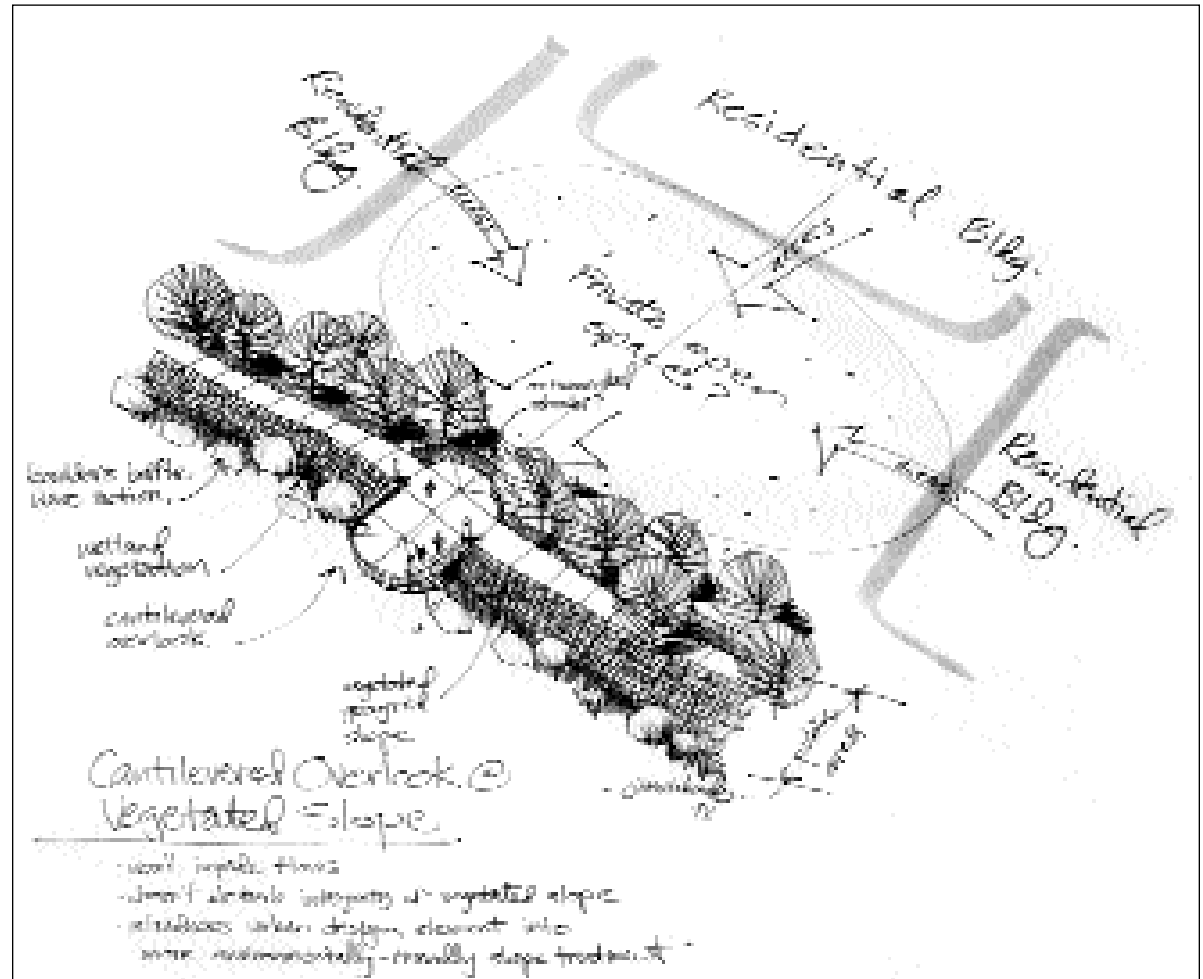 Residential
Bldg
Residential Bldg.
views
views
Private
open
space
Residential
Bldg.
views
boulders baffle
wave action.
wetland
vegetation
cantilevered
overlook
vegetated
geogrid
slope
Cantilevered Overlook @
Vegetated Slope
- won't impede flows
- doesn't disturb integrity of vegetated slope
- introduces urban design element into
more environmentally-friendly slope treatment